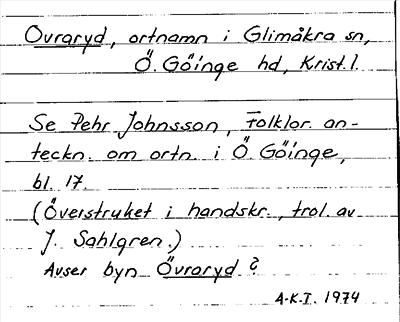 Ovraryd, ortnamn i Glimåkra sn,
Ö. Göinge hd, Krist. l.
Se Pehr Johnsson, Folklor. an-
teckn. om ortn. i Ö. Göinge,
bl. 17.
(Överstruket i handskr., trol. av
J. Sahlgren.)
Avser byn Övraryd?
A-K.I. 1974